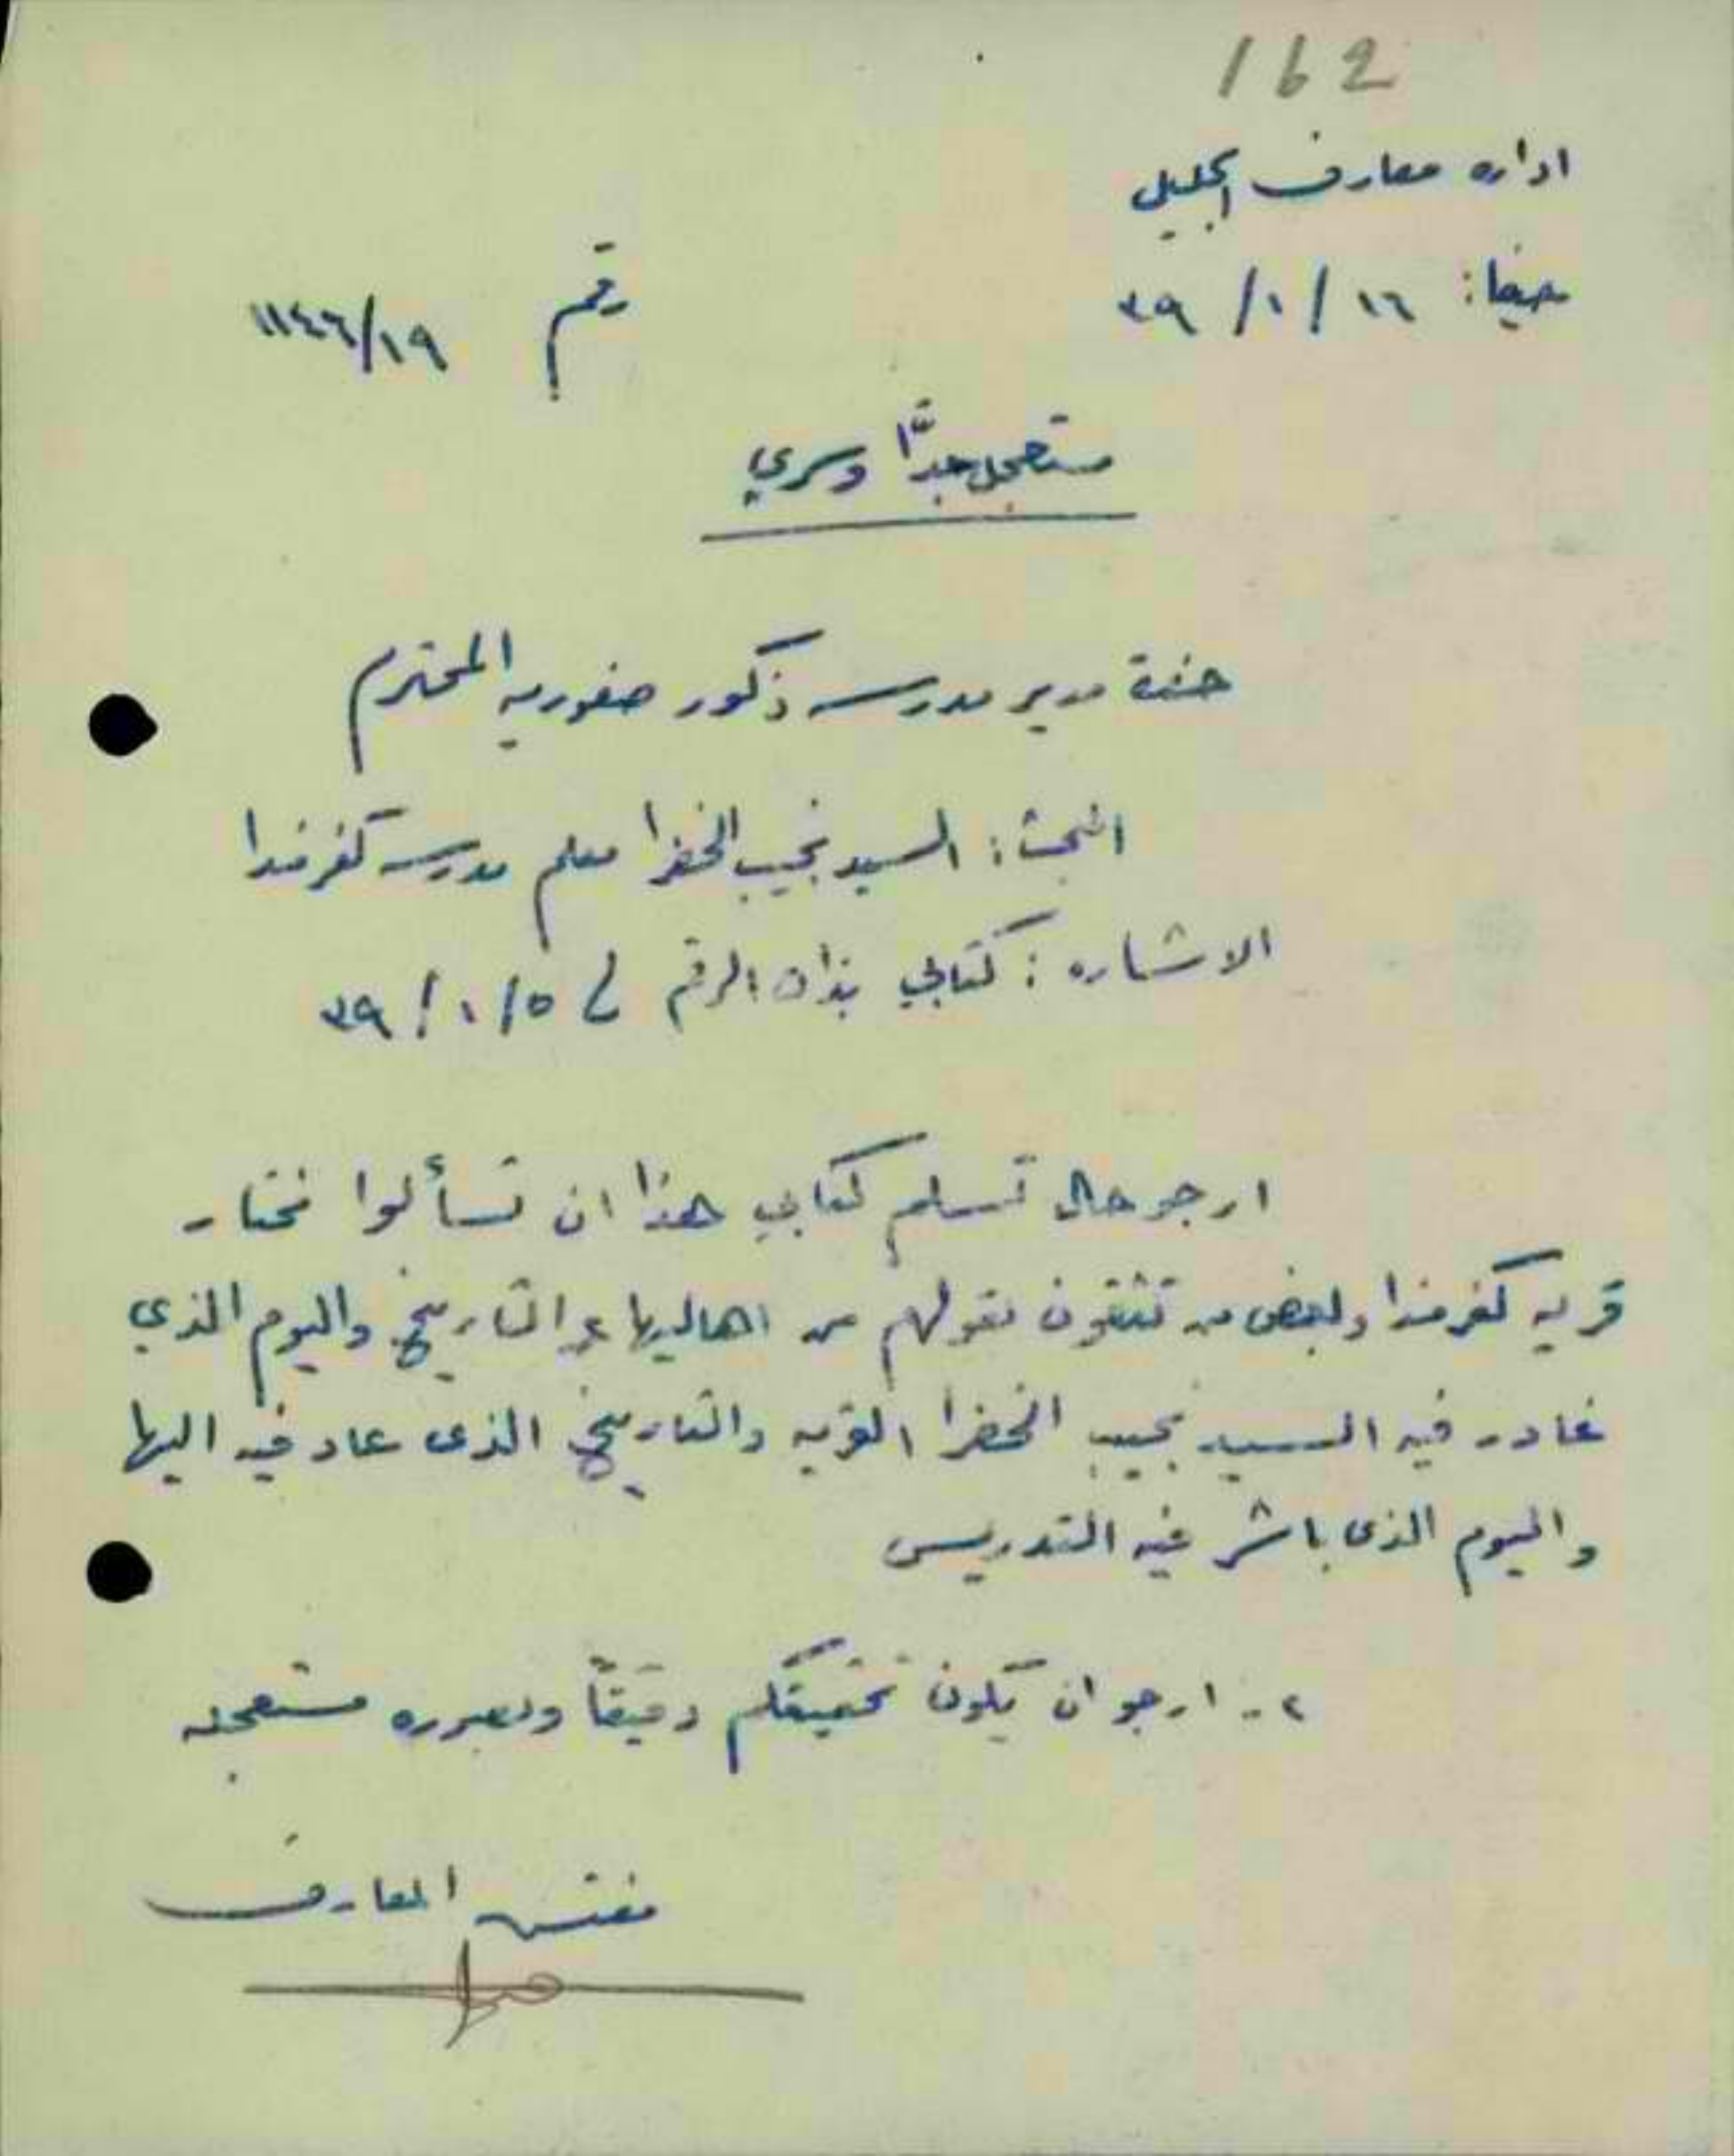 162
اداره معارف الجليل
حيفا: ١٦ / ١ / ٣٩
رقم ١١٤٦/١٩
مستعجل جدًّا وسري
حضرة مدير مدرسه ذكور صفوريه المحترم
البحث: السيد نجيب الخضرا معلم مدرسه كفرمندا
الاشاره: كتابي بذات الرقم في ٥ / ١ / ٣٩
ارجو حال تسلم كتابي هذا ان تسألوا مختار
قريه كفرمندا وبعض من تثقون بقولهم من اهاليها عن التاريخ واليوم الذي
غادر فيه السيد نجيب الخضرا القريه والتاريخ الذى عاد فيه اليها
واليوم الذى باشر فيه التدريس
٢- ارجو ان يكون تحقيقكم دقيقًا وبصوره مستعجله
مفتش المعارف